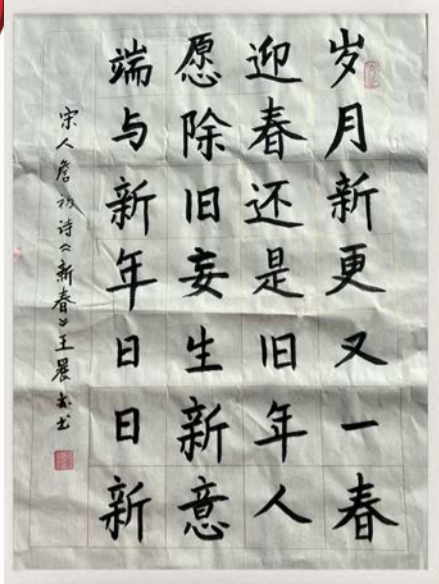 岁月新更又一春
迎春还是旧年人
愿除旧妄生新意
端与新年日日新
宋人詹初诗《新春》王晨书